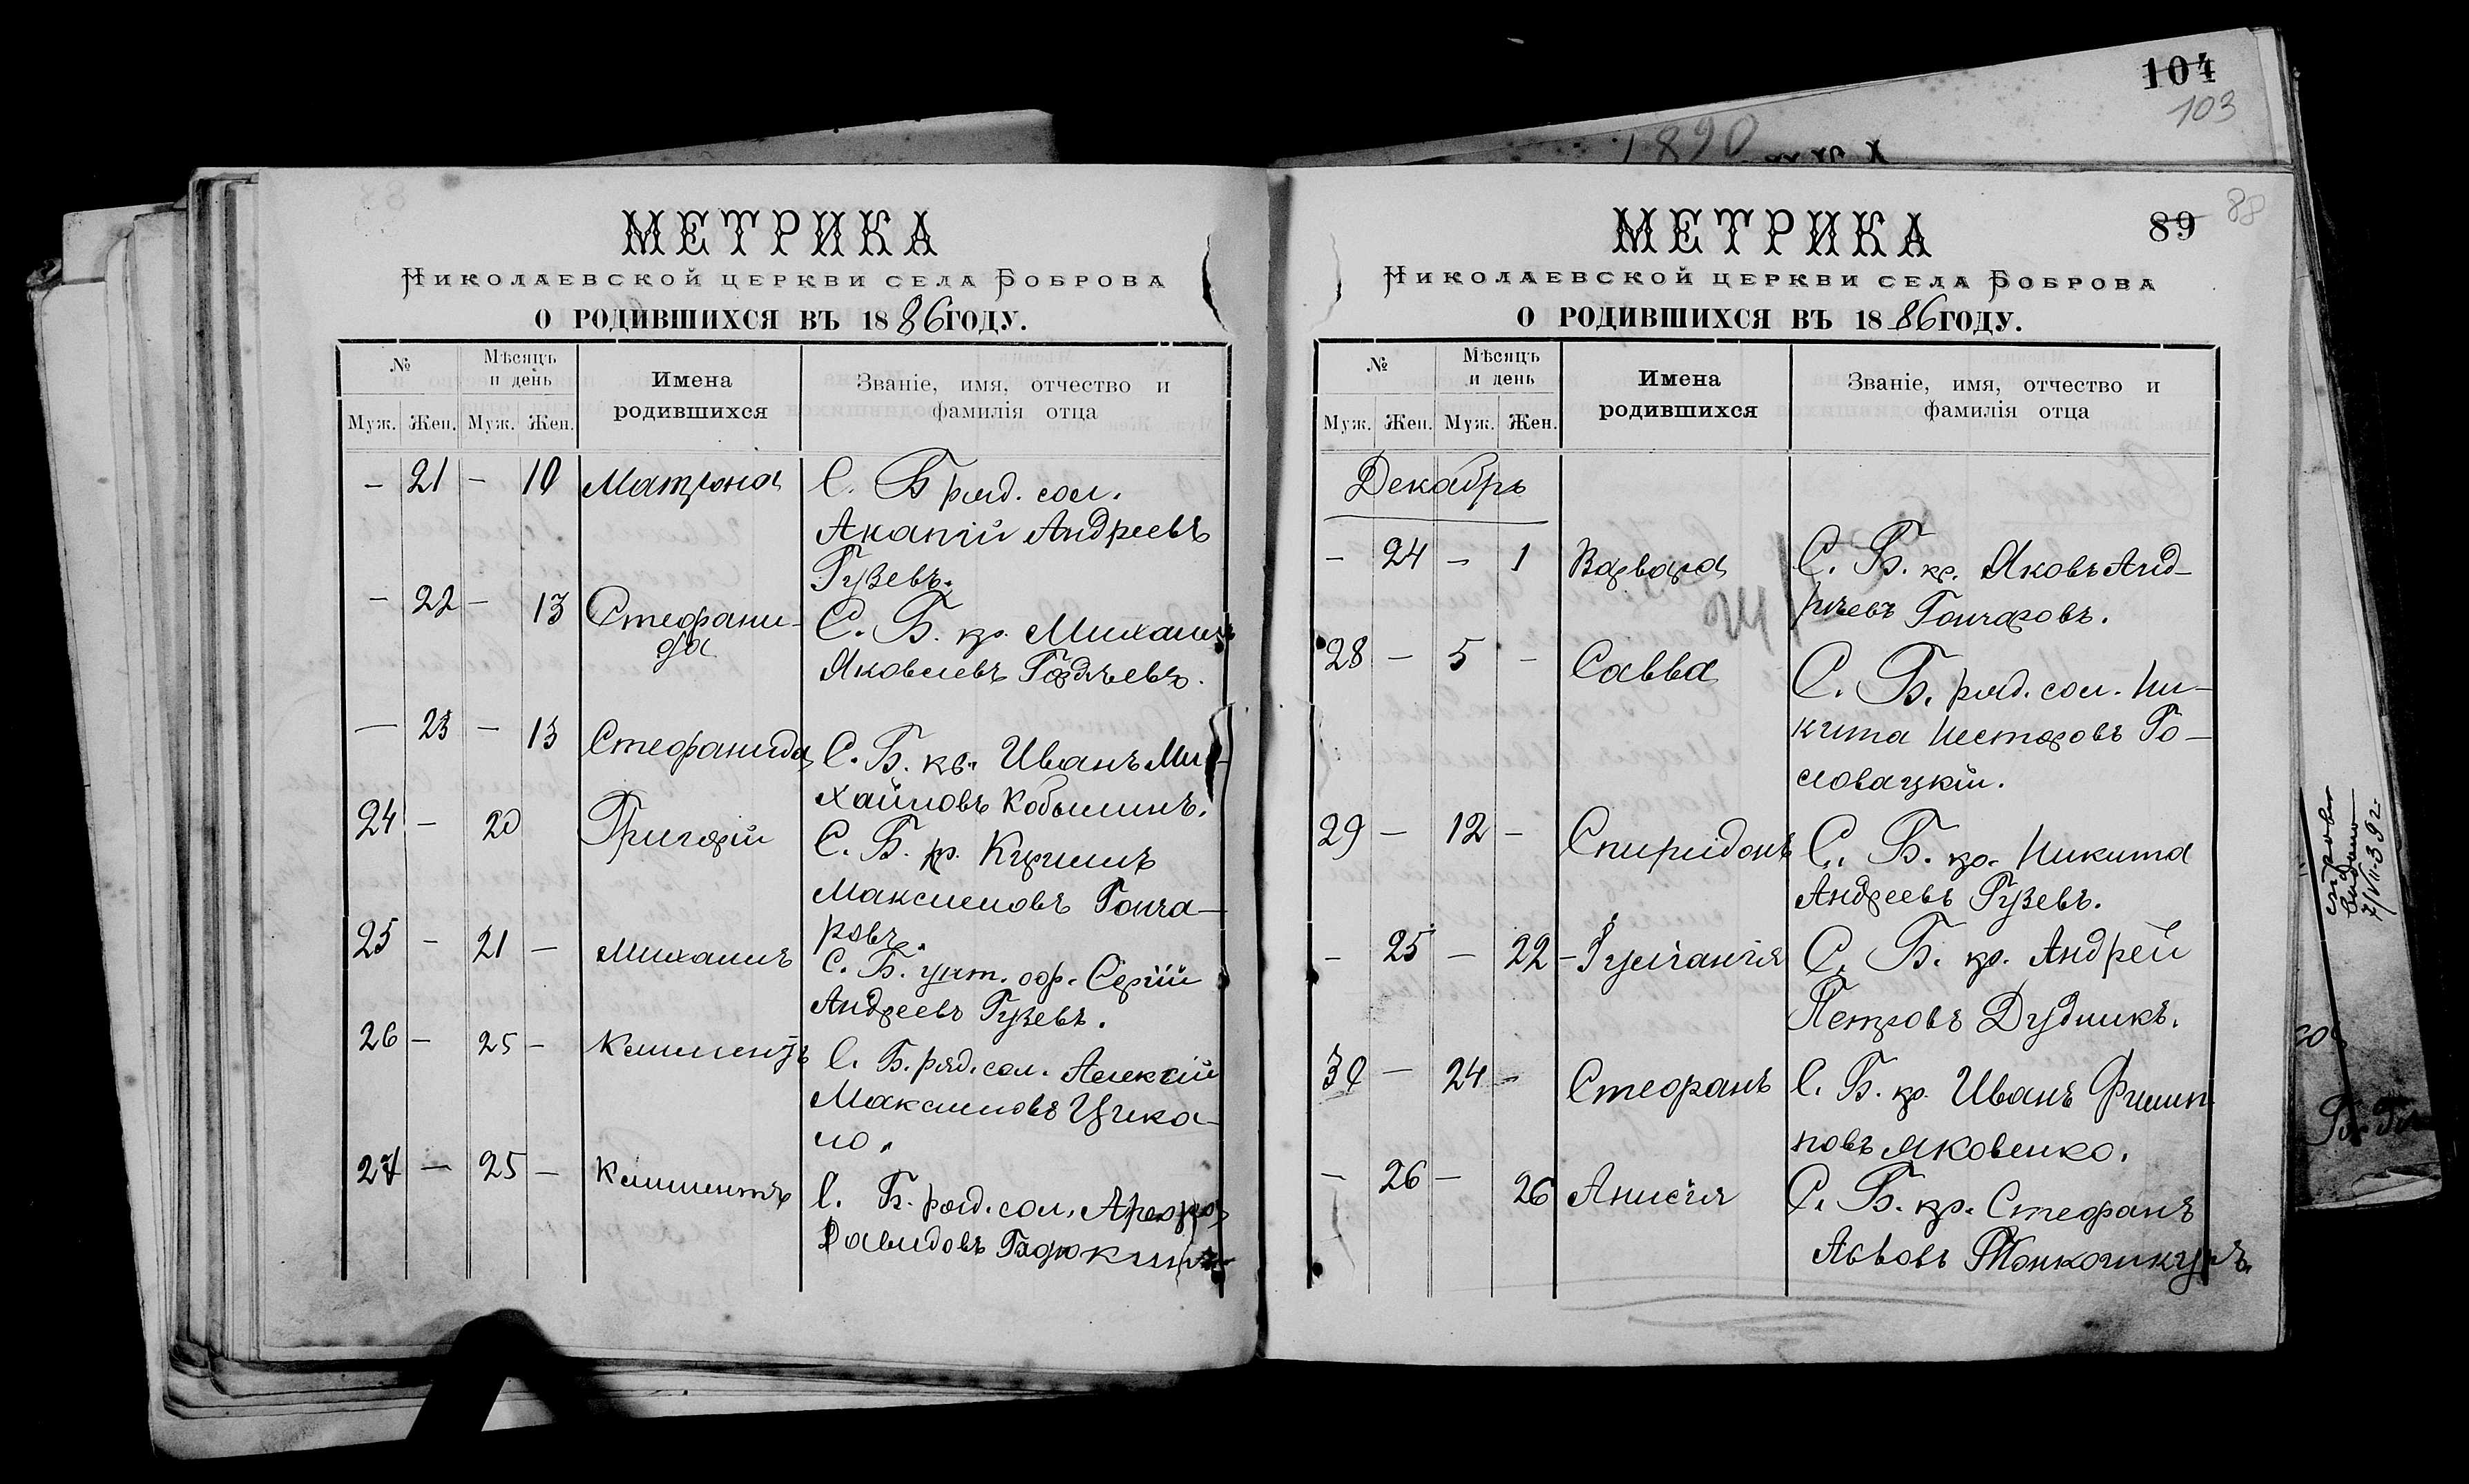 104
103
1890
МЕТРИКА
НИКОЛАЕВСКОЙ ЦЕРКВИ СЕЛА БОБРОВА
О РОДИВШИХСЯ ВЪ 1886 ГОДУ.
№ Мѣсяцъ и день Имена родившихся Званіе, имя, отчество и фамилія отца
Муж. Жен. Муж. Жен.
– 21 – 10 Матрона С. Б. ряд. сол.
Акапій Андреевъ
Гузевъ.
– 22 – 13 Стефани- С. Б. кр. Михаилъ
да Яковлевъ
– 23 – 13 Стефанида С. Б. кр. Иванъ Ми-
хайловъ Кобылинъ.
24 – 20 Григорій С. Б. кр. Кирилъ
Максимовъ Гонча-
ровъ.
25 – 21 – Михаилъ С. Б. унт. оф. Сергій
Андреевъ Гузевъ.
26 – 25 – Климентъ С. Б. ряд. сол. Алексій
Максимовъ Цико-
ло.
27 – 25 – Климентъ С. Б. ряд. сол.
Давидовъ
МЕТРИКА
89
88
НИКОЛАЕВСКОЙ ЦЕРКВИ СЕЛА БОБРОВА
О РОДИВШИХСЯ ВЪ 1886 ГОДУ.
№ Мѣсяцъ и день Имена родившихся Званіе, имя, отчество и фамилія отца
Муж. Жен. Муж. Жен.
Декабрь
– 24 – 1 Варвара С. Б. кр. Яковъ Анд-
рѣевъ Гончаровъ.
28 – 5 – Савва С. Б. ряд. сол. Ни-
кита Несторовъ Го-
ловацкій.
29 – 12 – Спиридонъ С. Б. кр. Никита
Андреевъ Гузевъ.
– 25 – 22 – Іуліанія С. Б. кр. Андрей
Петровъ Дудникъ.
30 – 24 – Стефанъ С. Б. кр. Иванъ Филип-
повъ Яковенко.
– 26 – 26 Анисія С. Б. кр. Стефанъ
Львовъ Тонкошкуръ.